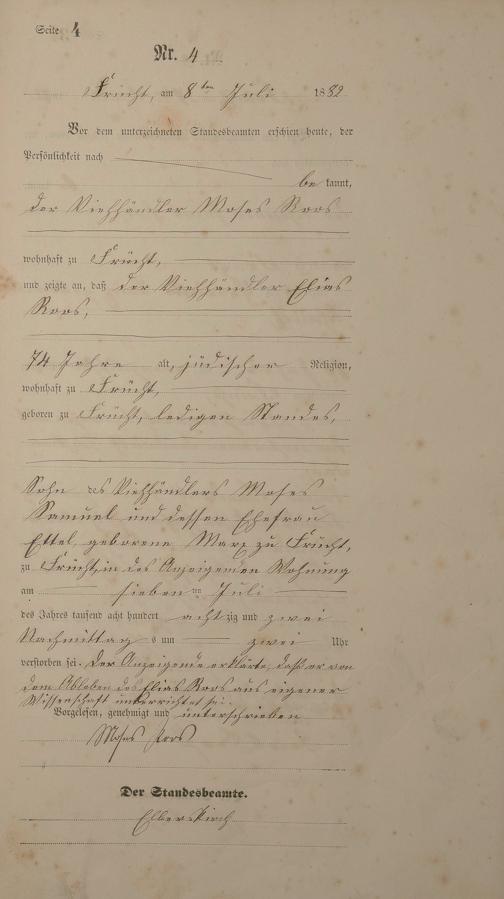 Seite 4
Nr. 4
Frücht, am 8ten Juli 1882
Vor dem unterzeichneten Standesbeamten erschien heute, der
Persönlichkeit nach
be kannt,
der Viehhändler Moses Roos
wohnhaft zu Frücht,
und zeigte an, daß der Viehhändler Elias
Roos,
74 Jahre alt, jüdischer Religion,
wohnhaft zu Frücht,
geboren zu Frücht, ledigen Standes,
Sohn des Viehhändlers Moses
Samuel und dessen Ehefrau
Ettel geborene Marx zu Frücht,
zu Frücht, in des Anzeigenden Wohnung
am sieben ten Juli
des Jahres tausend acht hundert achtzig und zwei
Nachmittags um zwei Uhr
verstorben sei. Der Anzeigende erklärte, daß er von
dem Ableben des Elias Roos aus eigener
Wissenschaft unterrichtet sei.
Vorgelesen, genehmigt und unterschrieben
Moses Roos
Der Standesbeamte.
Elberskirch